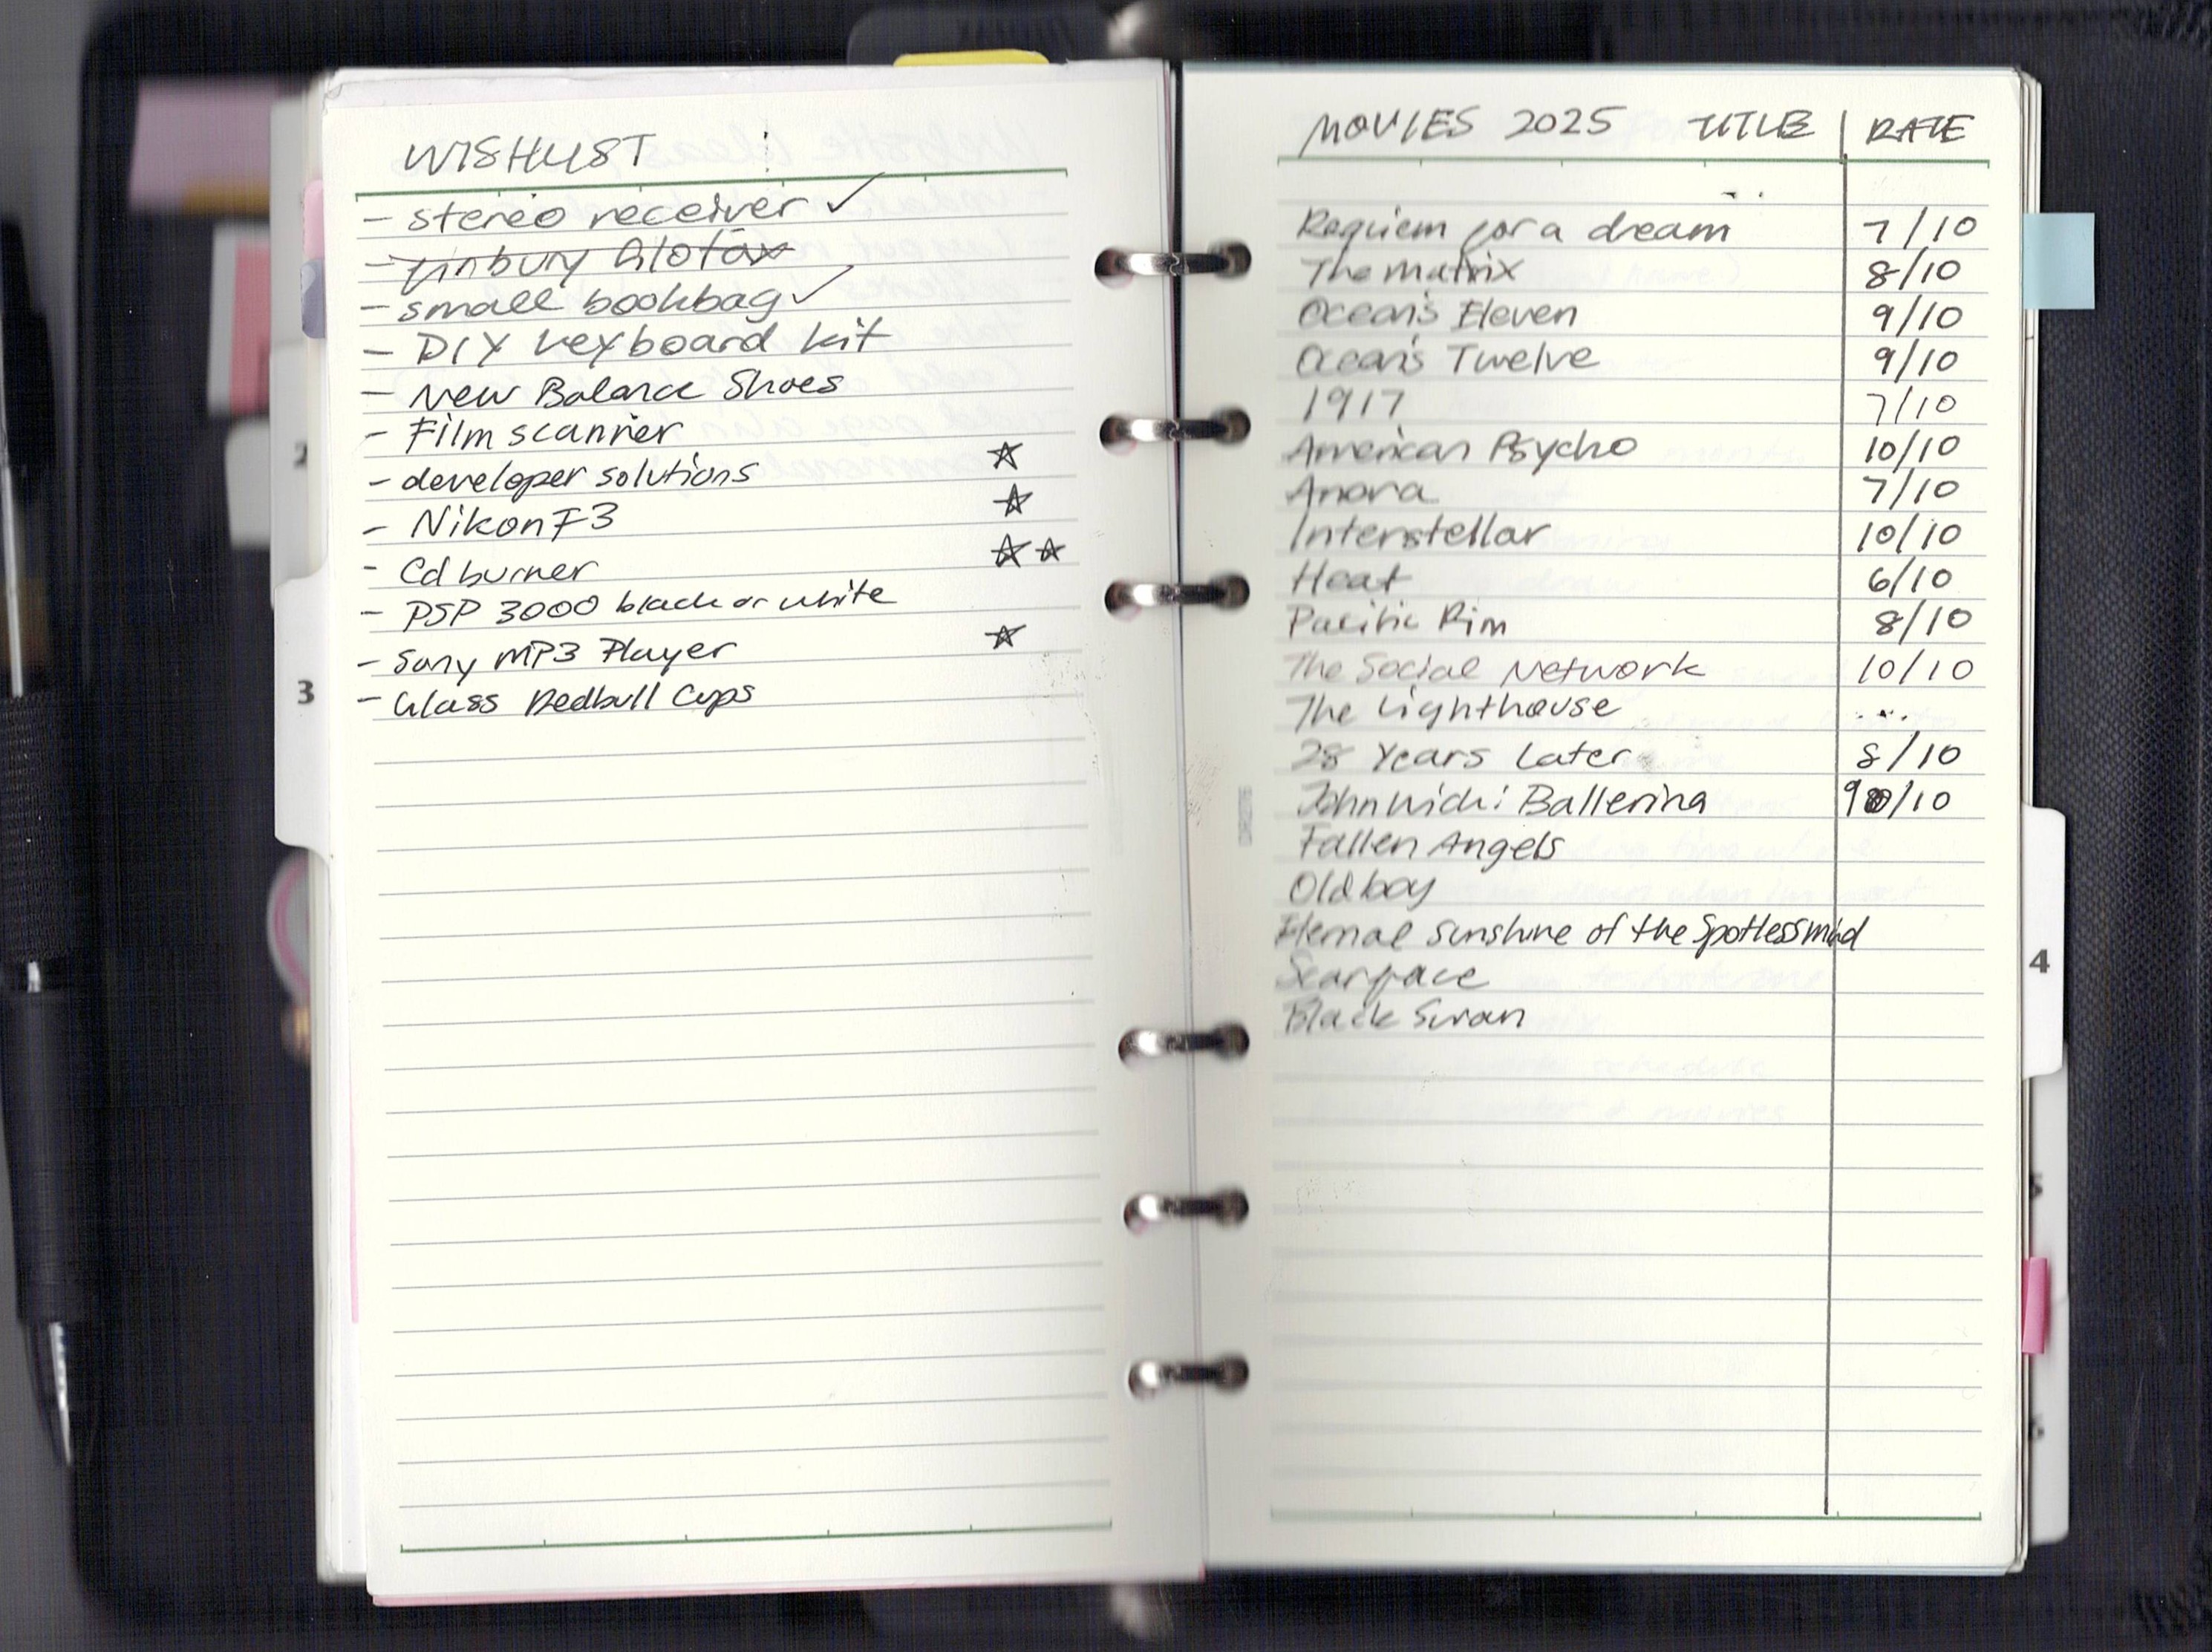 WISHLIST
- stereo receiver ✓
- finbury filofax
- small bookbag ✓
- DIY keyboard kit
- New Balance Shoes
- Film scanner
- developer solutions ☆
- Nikon F3 ☆
- Cd burner ☆☆
- PSP 3000 black or white
- Sony MP3 Player ☆
- Glass Redbull Cups
2
3
MOVIES 2025 TITLE | RATE
Requiem for a dream 7/10
The Matrix 8/10
Ocean's Eleven 9/10
Ocean's Twelve 9/10
1917 7/10
American Psycho 10/10
Anora 7/10
Interstellar 10/10
Heat 6/10
Pacific Rim 8/10
The Social Network 10/10
The Lighthouse ...
28 Years Later 8/10
John Wick: Ballerina 9/10
Fallen Angels
Oldboy
Eternal Sunshine of the Spotless mind
Scarface
Black Swan
4
5
6